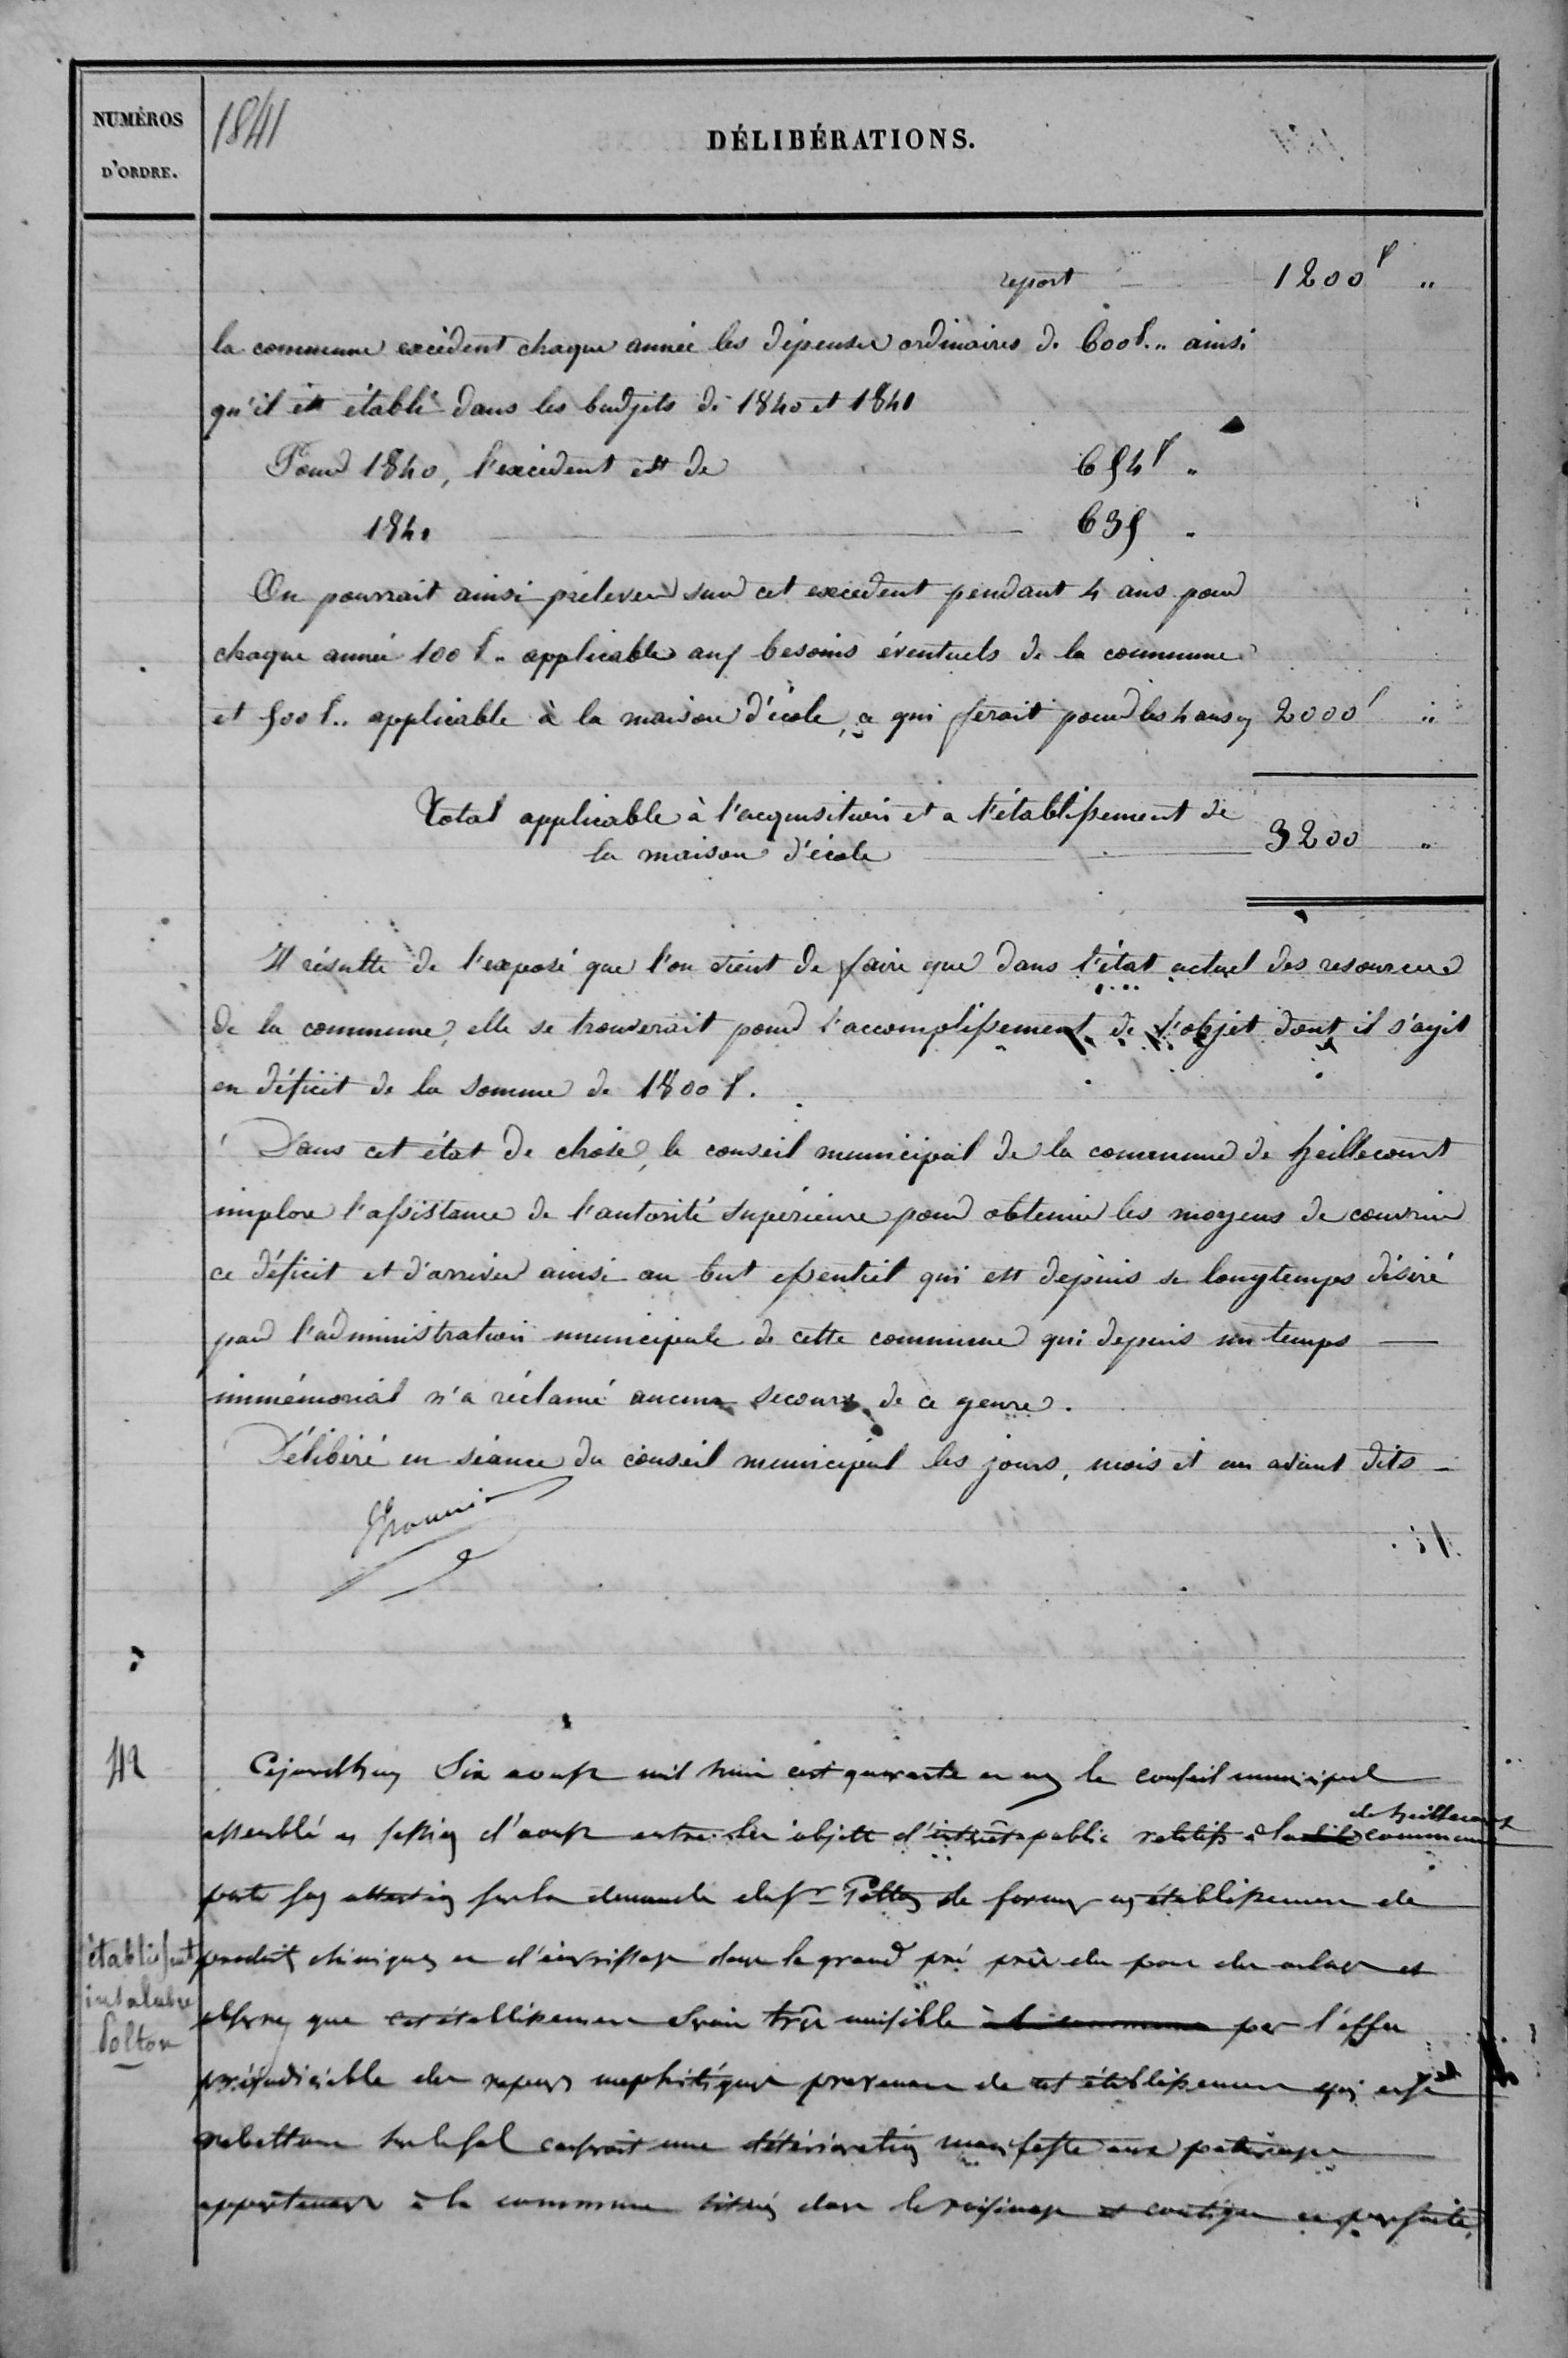 NUMÉROS
D'ORDRE.
1841
DÉLIBÉRATIONS.
report 1200f "
la commune excèdent chaque année les dépenses ordinaires de 600f.. ainsi
qu'il est établi dans les budgets de 1840 et 1841
Pour 1840, l'excèdent est de 654f "
1841 635 "
On pourrait ainsi prélever sur cet excèdent pendant 4 ans pour
chaque année 100f.. applicable aux besoins éventuels de la commune
et 500f.. applicable à la maison d'école, ce qui ferait pour les 4 ans 2000f "
Total applicable à l'acquisition et a l'établissement de
la maison d'école 3200 "
Il résulte de l'exposé que l'on vient de faire que dans l'état actuel des resources
de la commune, elle se trouverait pour l'accomplissement de l'objet dont il s'agit
en déficit de la somme de 1800f.
Dans cet état de chose, le conseil municipal de la commune de heillecourt
implore l'assistance de l'autorité supérieure pour obtenir les moyens de couvrir
ce déficit et d'arriver ainsi au but essentiel qui est depuis si longtemps désiré
par l'administration municipale de cette commune qui depuis un temps
immémorial n'a réclamé aucun secours de ce genre.
Délibéré en séance du conseil municipal les jours, mois et an avant dits
42
Cejourdhuy Six aoust mil huit cent quarante un le conseil municipal
assemblé en session d'aoust entre les objets d'intérêt public relatifs à la commune
de heillecourt
porte son attention sur la demande du Sr Polton de former un établissement de
établissent
insalubre
Polton
produits chimiques et d'équarrissage dans le grand pré près du pont de et
observe que cet établissement serait très nuisible par l'effet
préjudiciable des vapeurs mephitiques provenant de cet établissement qui en se
rabattant sur le sol causerait une détérioration manifeste aux paturages
appartenant à la commune situés dans le voisinage et contigu